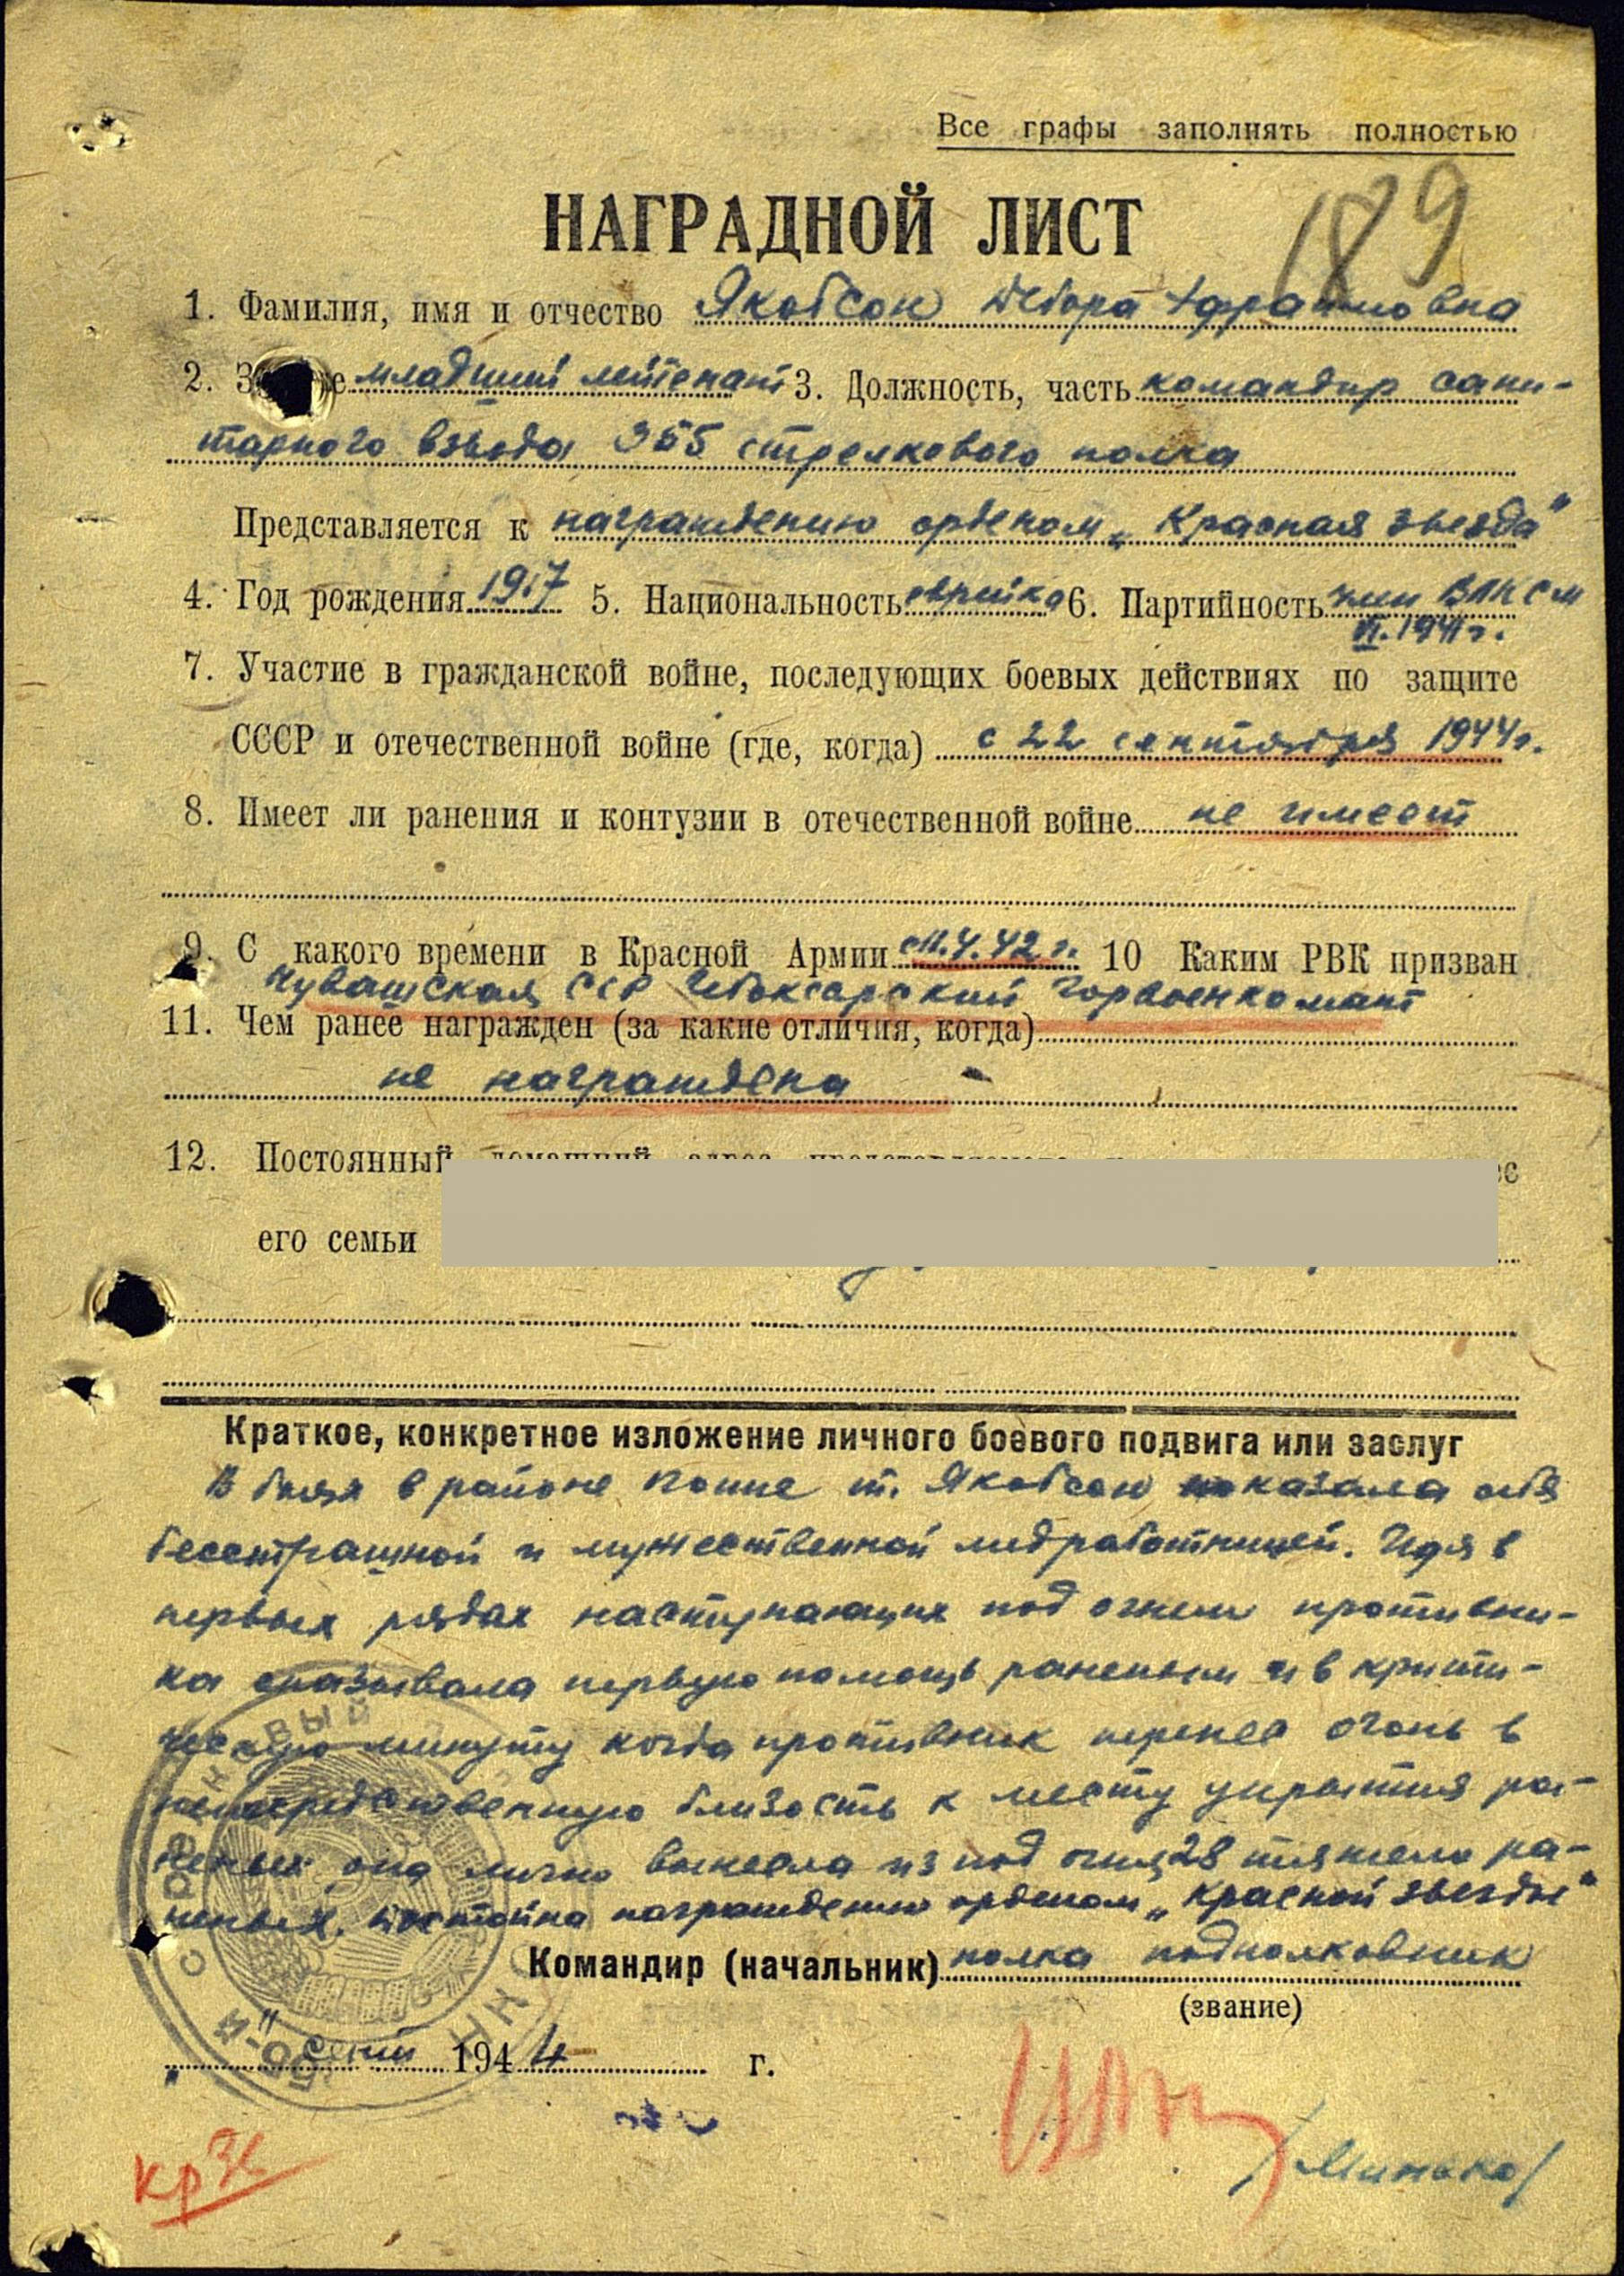 Все графы заполнять полностью
189
НАГРАДНОЙ ЛИСТ
1. Фамилия, имя и отчество Якобсон Дебора
2. младший лейтенант 3. Должность, часть командир сани-
тарного взвода 355 стрелкового полка
Представляется к награждению орденом „Красная звезда"
4. Год рождения 1917 5. Национальность еврейка 6. Партийность член ВЛКСМ
VI. 1941 г.
7. Участие в гражданской войне, последующих боевых действиях по защите
СССР и отечественной войне (где, когда) с 22 сентября 1944 г.
8. Имеет ли ранения и контузии в отечественной войне не имеет
9. С какого времени в Красной Армии 42 г. 10 Каким РВК призван
Чувашская ССР Чебоксарский Горвоенкомат
11. Чем ранее награжден (за какие отличия, когда)
не награждена
12. Постоянный
его семьи
Краткое, конкретное изложение личного боевого подвига или заслуг
В боях в районе т. Якобсон показала себя
бесстрашной и мужественной медработницей. Идя в
первых рядах наступающих под огнем противни-
ка оказывала первую помощь раненым и в крити-
ческую минуту когда противник перенес огонь в
непосредственную близость к месту укрытия ра-
неных она лично вынесла из под огня 28 тяжело ра-
неных. Достойна награждения орденом „Красной звезды"
Командир (начальник) полка подполковник
(звание)
" сент 1944 г.
кр зв